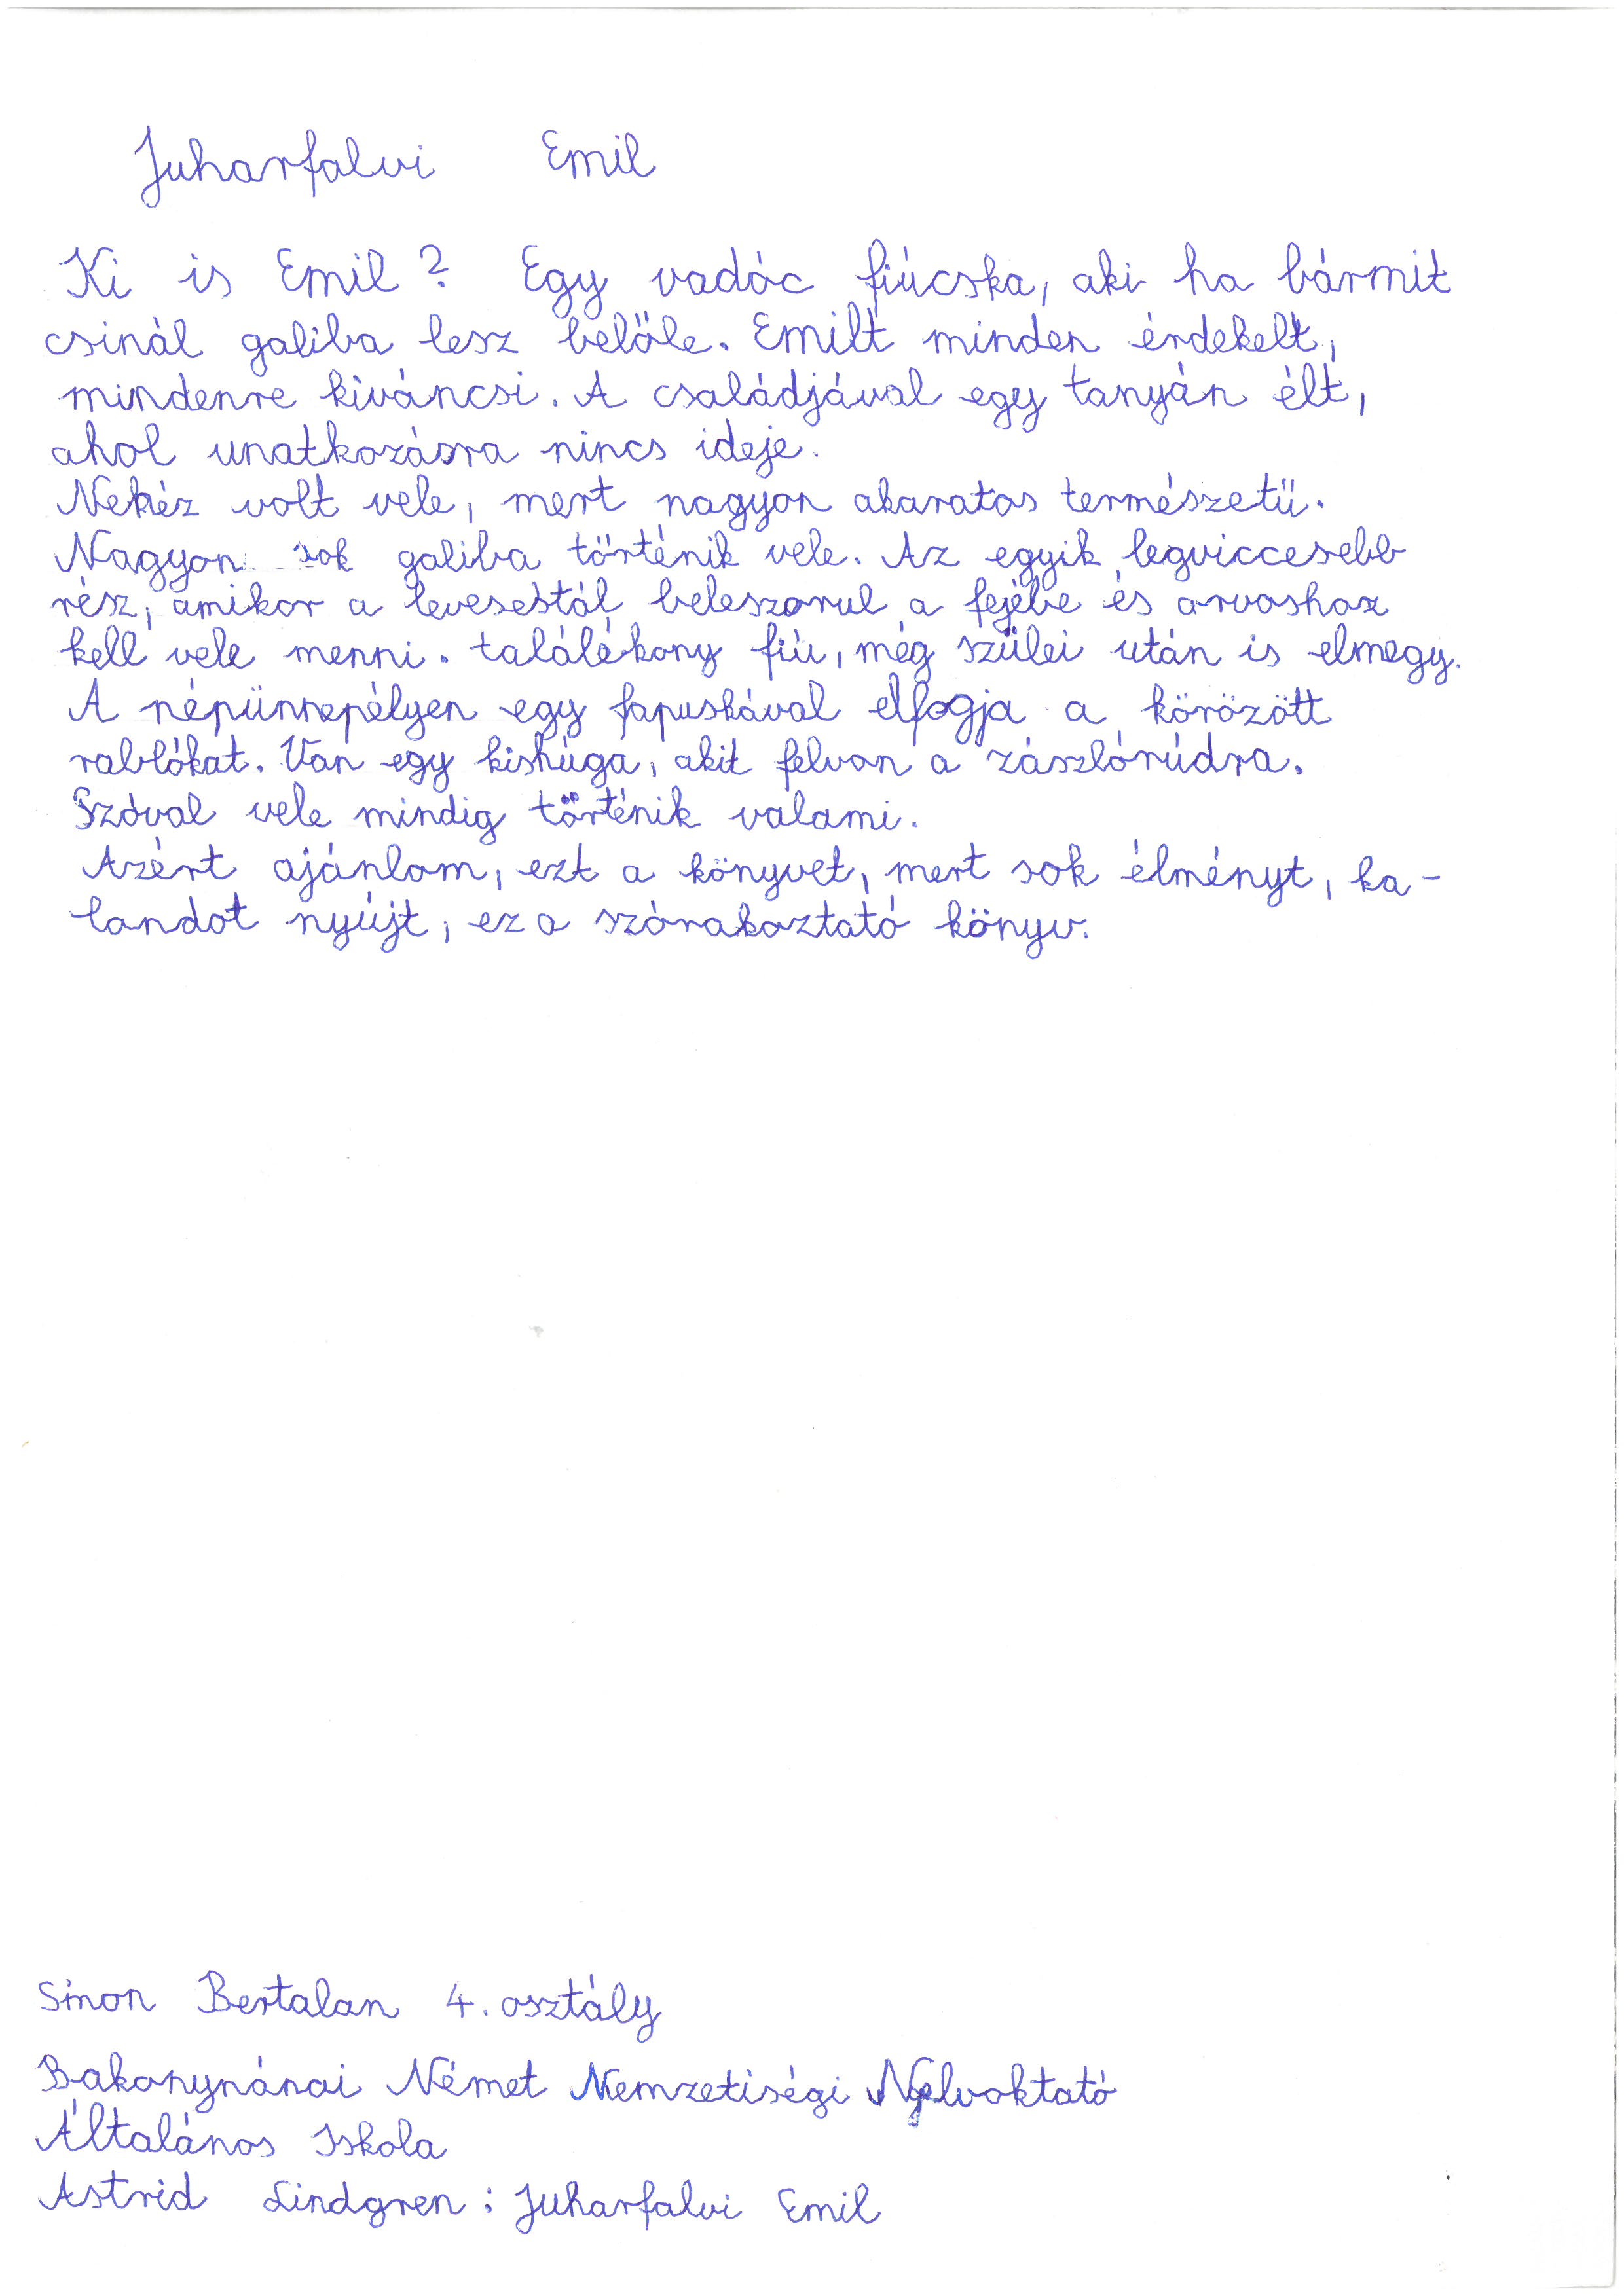 Juharfalvi Emil
Ki is Emil? Egy vadóc fiúcska, aki ha bármit
csinál galiba lesz belőle. Emilt minden érdekelt,
mindenre kiváncsi. A családjával egy tanyán élt,
ahol unatkozásra nincs ideje.
Nehéz volt vele, mert nagyon akaratos természetű.
Nagyon sok galiba történik vele. Az egyik legviccesebb
rész, amikor a levesestál beleszorul a fejébe és orvoshoz
kell vele menni. találékony fiú, még szülei után is elmegy.
A népünnepélyen egy fapuskával elfogja a körözött
rablókat. Van egy kishúga, akit felvon a zászlórúdra.
Szóval vele mindig történik valami.
Azért ajánlom, ezt a könyvet, mert sok élményt, ka-
landot nyújt, ez a szórakoztató könyv.
Simon Bertalan 4. osztály
Bakonynánai Német Nemzetiségi Nyelvoktató
Általános Iskola
Astrid Lindgren: Juharfalvi Emil